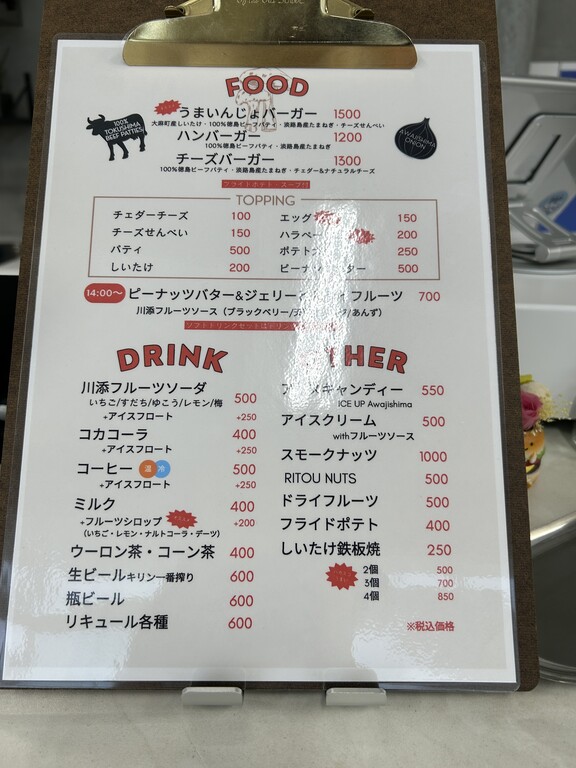 FOOD
うまいんじょバーガー 1500
大麻町産しいたけ・100%徳島ビーフパティ・淡路島産たまねぎ・チーズせんべい
ハンバーガー 1200
100%徳島ビーフパティ・淡路島産たまねぎ
チーズバーガー 1300
100%徳島ビーフパティ・淡路島産たまねぎ・チェダー&ナチュラルチーズ
100% TOKUSHIMA BEEF PATTIES
AWAJISHIMA ONION
フライドポテト・スープ付
TOPPING
チェダーチーズ 100
チーズせんべい 150
パティ 500
しいたけ 200
エッグ 150
ハラペー 200
ポテト 250
ピーナ バター 500
14:00〜 ピーナッツバター&ジェリー フルーツ 700
川添フルーツソース(ブラックベリー/ /あんず)
DRINK
川添フルーツソーダ 500
いちご/すだち/ゆこう/レモン/梅
+アイスフロート +250
コカコーラ 400
+アイスフロート +250
コーヒー 温 冷 500
+アイスフロート +250
ミルク 400
+フルーツシロップ +200
(いちご・レモン・ナルトコーラ・デーツ)
ウーロン茶・コーン茶 400
生ビール キリン一番搾り 600
瓶ビール 600
リキュール各種 600
OTHER
キャンディー 550
ICE UP Awajishima
アイスクリーム 500
withフルーツソース
スモークナッツ 1000
RITOU NUTS 500
ドライフルーツ 500
フライドポテト 400
しいたけ鉄板焼 250
2個 500
3個 700
4個 850
※税込価格